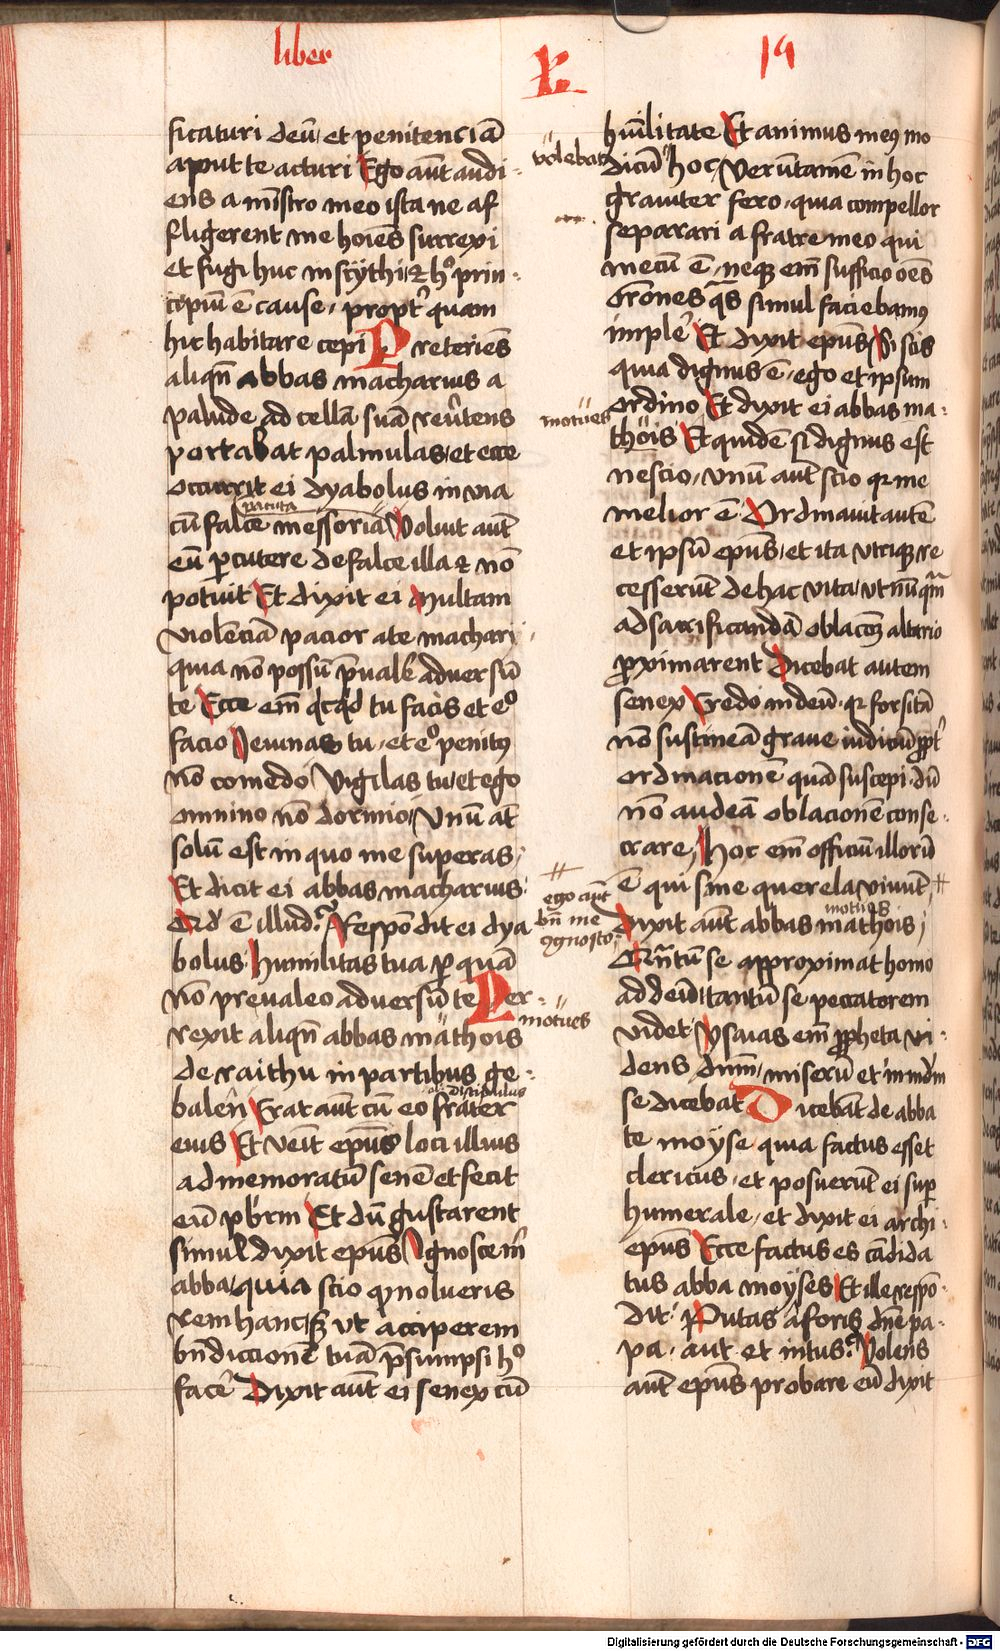 liber
R
19
ficaturi deū et penitenciā
aput te acturi Ego aūt audi-
ens a mīstro meo ista ne af
fligerent me hoīes surrexi
et fugi huc in scythi
et hᵒ prin-
cipiū ē cause propt' quam
hic habitare cepi Preteriēs
aliqn̄ abbas macharius a
palude ad cellā suā reu'tens
portabat palmulas et ecce
occurrit ei dyabolus in via
cū falce messoria Voluit aūt
eū p̄cutere de falce illa et nō
potuit Et dixit ei Multam
violēciā pacior a te machari
quia nō possū p̄uale' adversū
te Ecce em̄ qcqd tu facis et eᵒ
facio Jeiunas tu et eᵒ penitꝰ
nō comedo Vigilas tu et ego
omnino nō dormio Vnū at̄
solū est in quo me superas
Et dicit ei abbas macharius
Qd' ē illud? Respōdit ei dya
bolus Humilitas tua p̄ quā
nō prevaleo adversū te Per-
rexit aliqn̄ abbas mathois
de raithu in partibus ge-
balen̄ Erat aūt cū eo frater
eius Et veīt epūs loci illius
ad memoratū senē et fecit
eū pb'rm Et dū gustarent
simul dixit epūs Ignosce m'
abba quia scio qꝫ nolueris
rem hanc sꝫ vt acciperem
bn̄diccionē tuā p̄sumpsi hᵒ
face' Dixit aūt ei senex cū
volebat
motues
ego aūt
bn̄ me
ꝯgnosco
motues
hūilitate Et animus meꝰ mo
dicū hoc Verūtamē in hoc
graviter fero quia compellor
separari a fratre meo qui
mecū ē neqꝫ em̄ sufficio oēs
or̄ones qas simul faciebamꝰ
imple' Et dixit epūs Si scis
quia dignus ē ego et ipsum
ordino Et dixit ei abbas ma-
thois Et quidē si dignus est
nescio vnū aūt scio qꝫ me
melior ē Ordinavit autē
et ipsū epūs et ita vterqꝫ re
cesserūt de hac vita vt nūqm̄
ad sacrificandā oblac̄oꝫ altario
p̄ximarent Dicebat autem
senex Credo in deū qꝫ forsitā
nō sustineā grave iudiciū ppt'
ordinacionē quā suscepi dū
nō audeā oblacionē conse-
crare Hoc em̄ officiū illorū
ē qui sine querela vivūt
motues
Dixit aūt abbas mathois
Qn̄tū se approximat homo
ad deū tantū se peccatorem
videt Ysaias em̄ ppheta vi-
dens dnm̄ miserū et inmūdm̄
se dicebat Dicebāt de abba
te moyse quia factus esset
clericus et posuerūt ei sup̄
humerale et dixit ei archi-
epūs Ecce factus es cādida
tus abba moyses Et ille respō-
dit Putas a foris dn̄e pa-
pa aut et intus? Volens
aūt epūs probare eū dixit
Digitalisierung gefördert durch die Deutsche Forschungsgemeinschaft - DFG